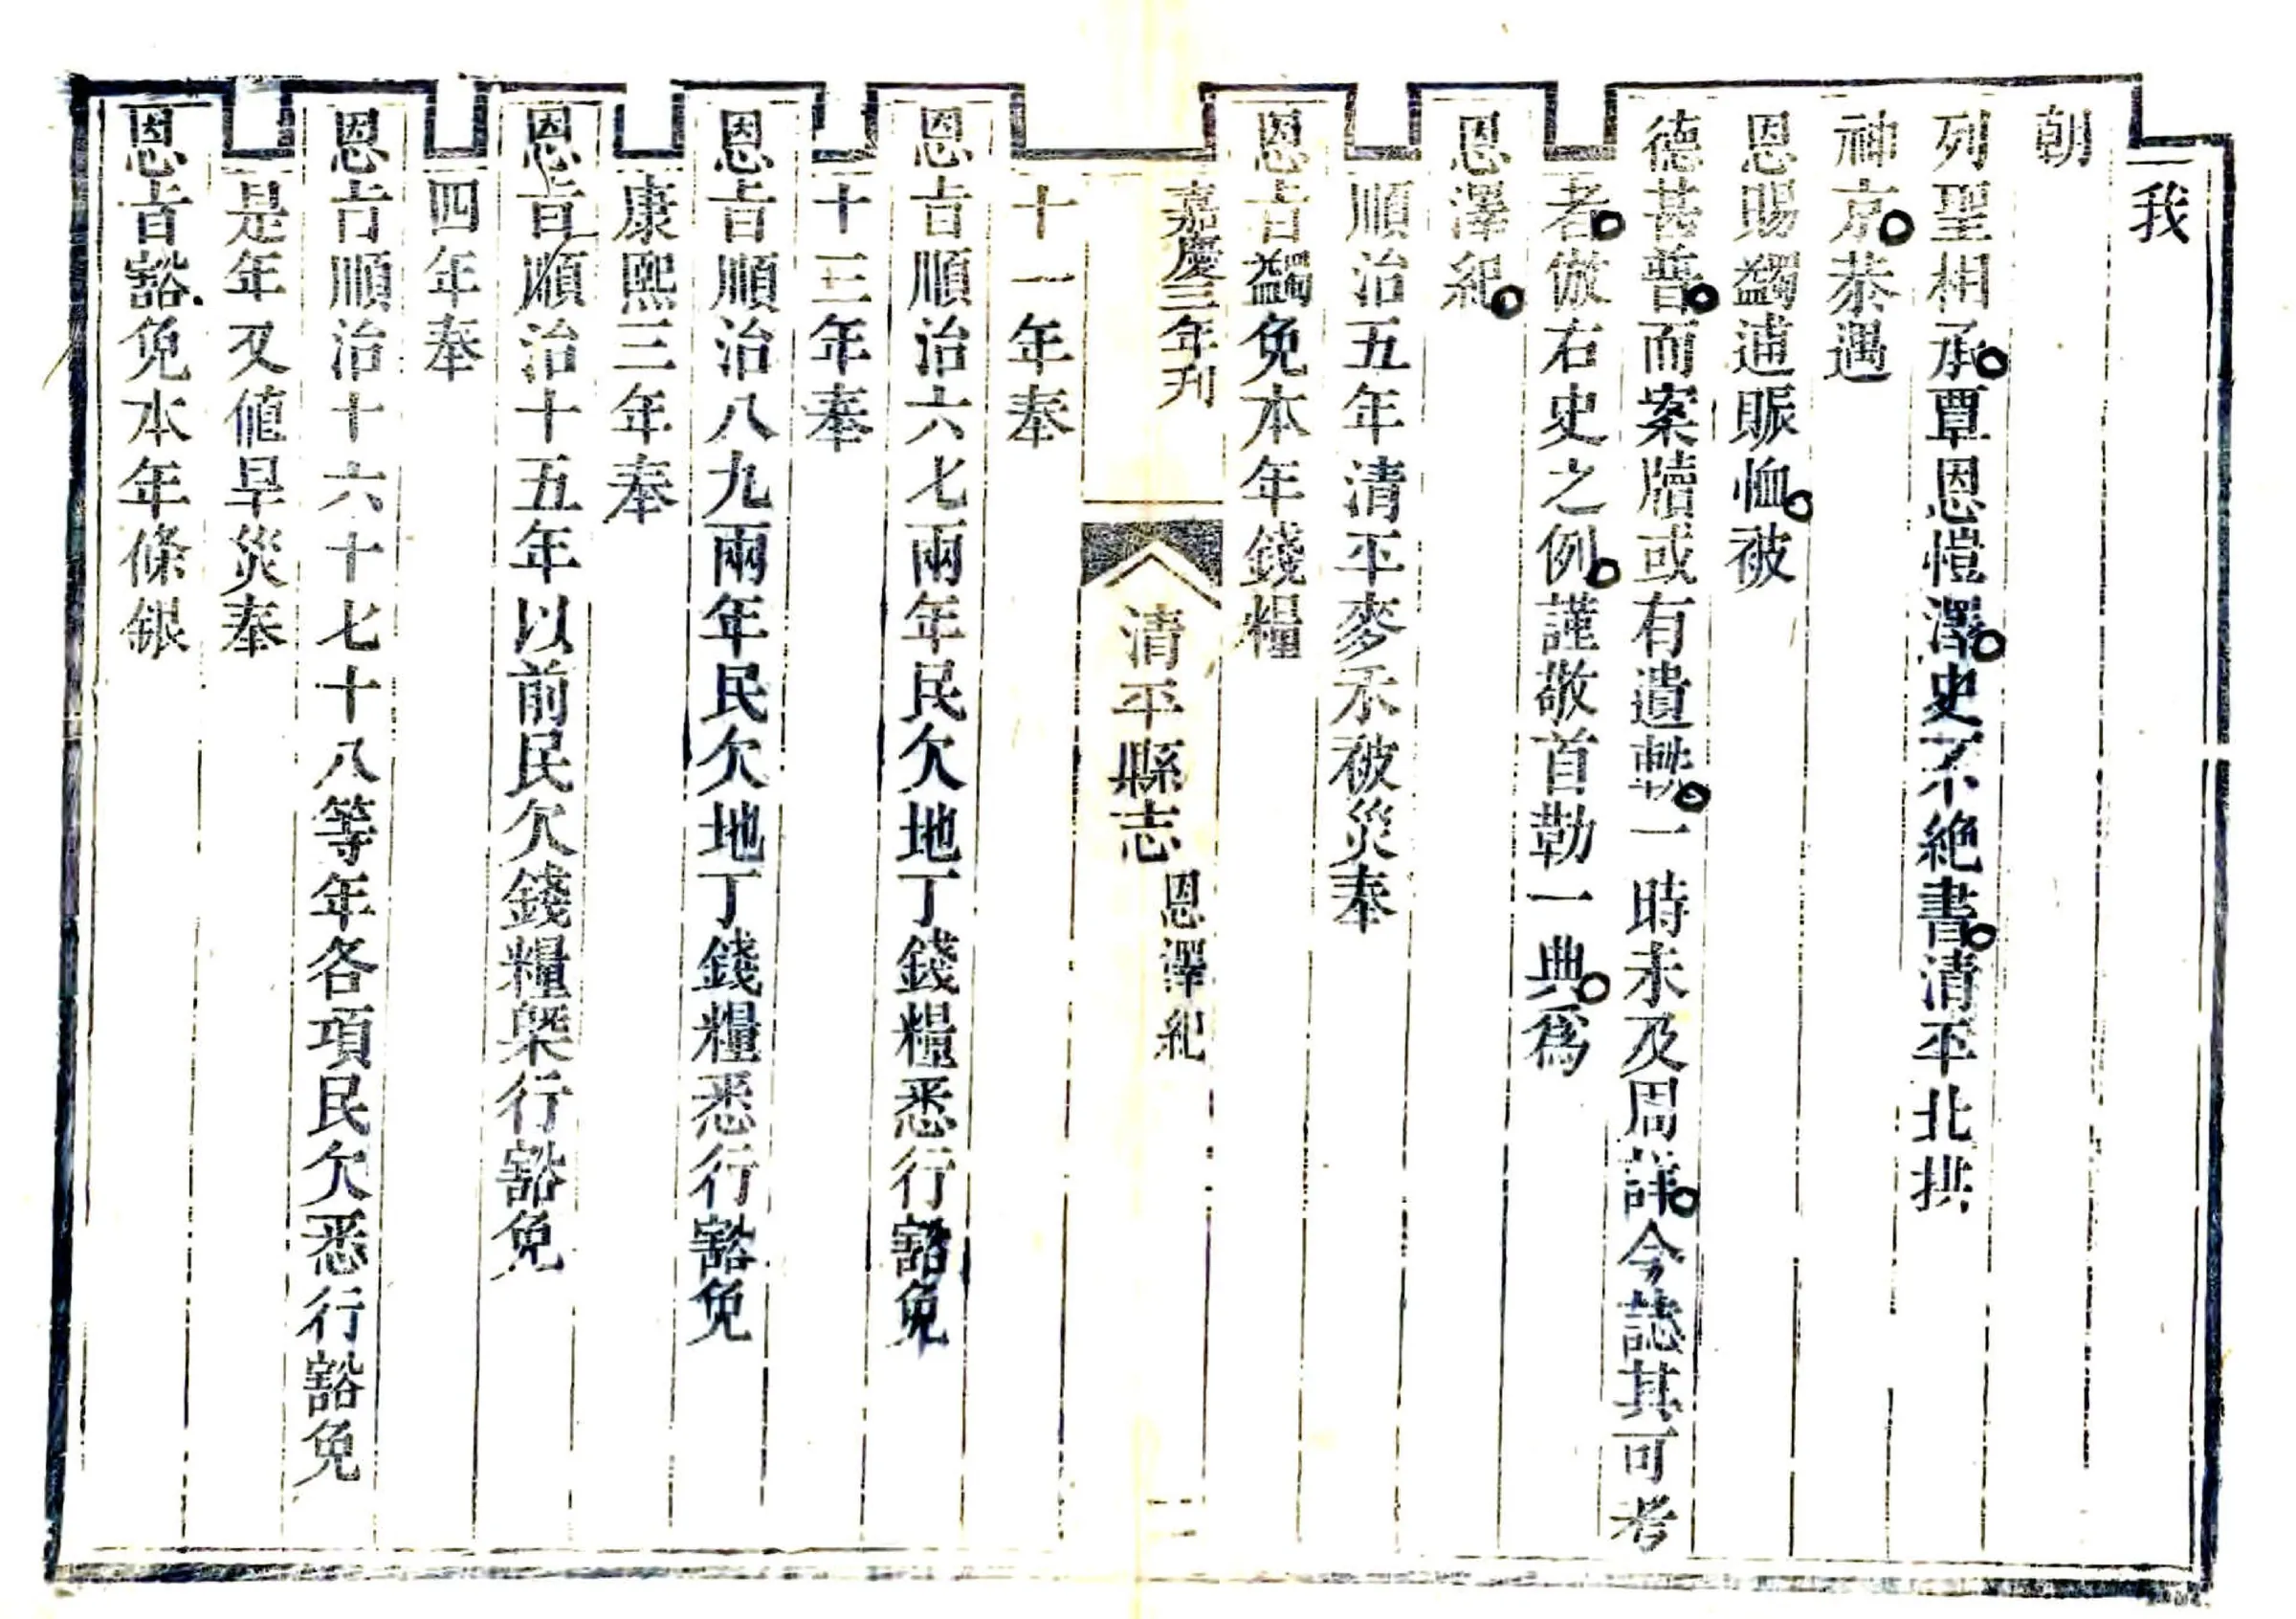 我
朝
列聖相承覃恩愷澤史不絕書清平北拱
神京恭遇
恩賜蠲逋賑恤被
德甚普而案牘或有遺軼一時未及周詳今誌其可考
者倣右史之例謹敬首勒一典爲
恩澤紀
順治五年清平麥禾被災奉
恩旨蠲免本年錢糧
嘉慶三年刋
清平縣志
恩澤紀
二
十一年奉
恩旨順治六七兩年民欠地丁錢糧悉行豁免
十三年奉
恩旨順治八九兩年民欠地丁錢糧悉行豁免
康熙三年奉
恩旨順治十五年以前民欠錢糧槩行豁免
四年奉
恩旨順治十六十七十八等年各項民欠悉行豁免
是年又値旱災奉
恩旨豁免本年條銀